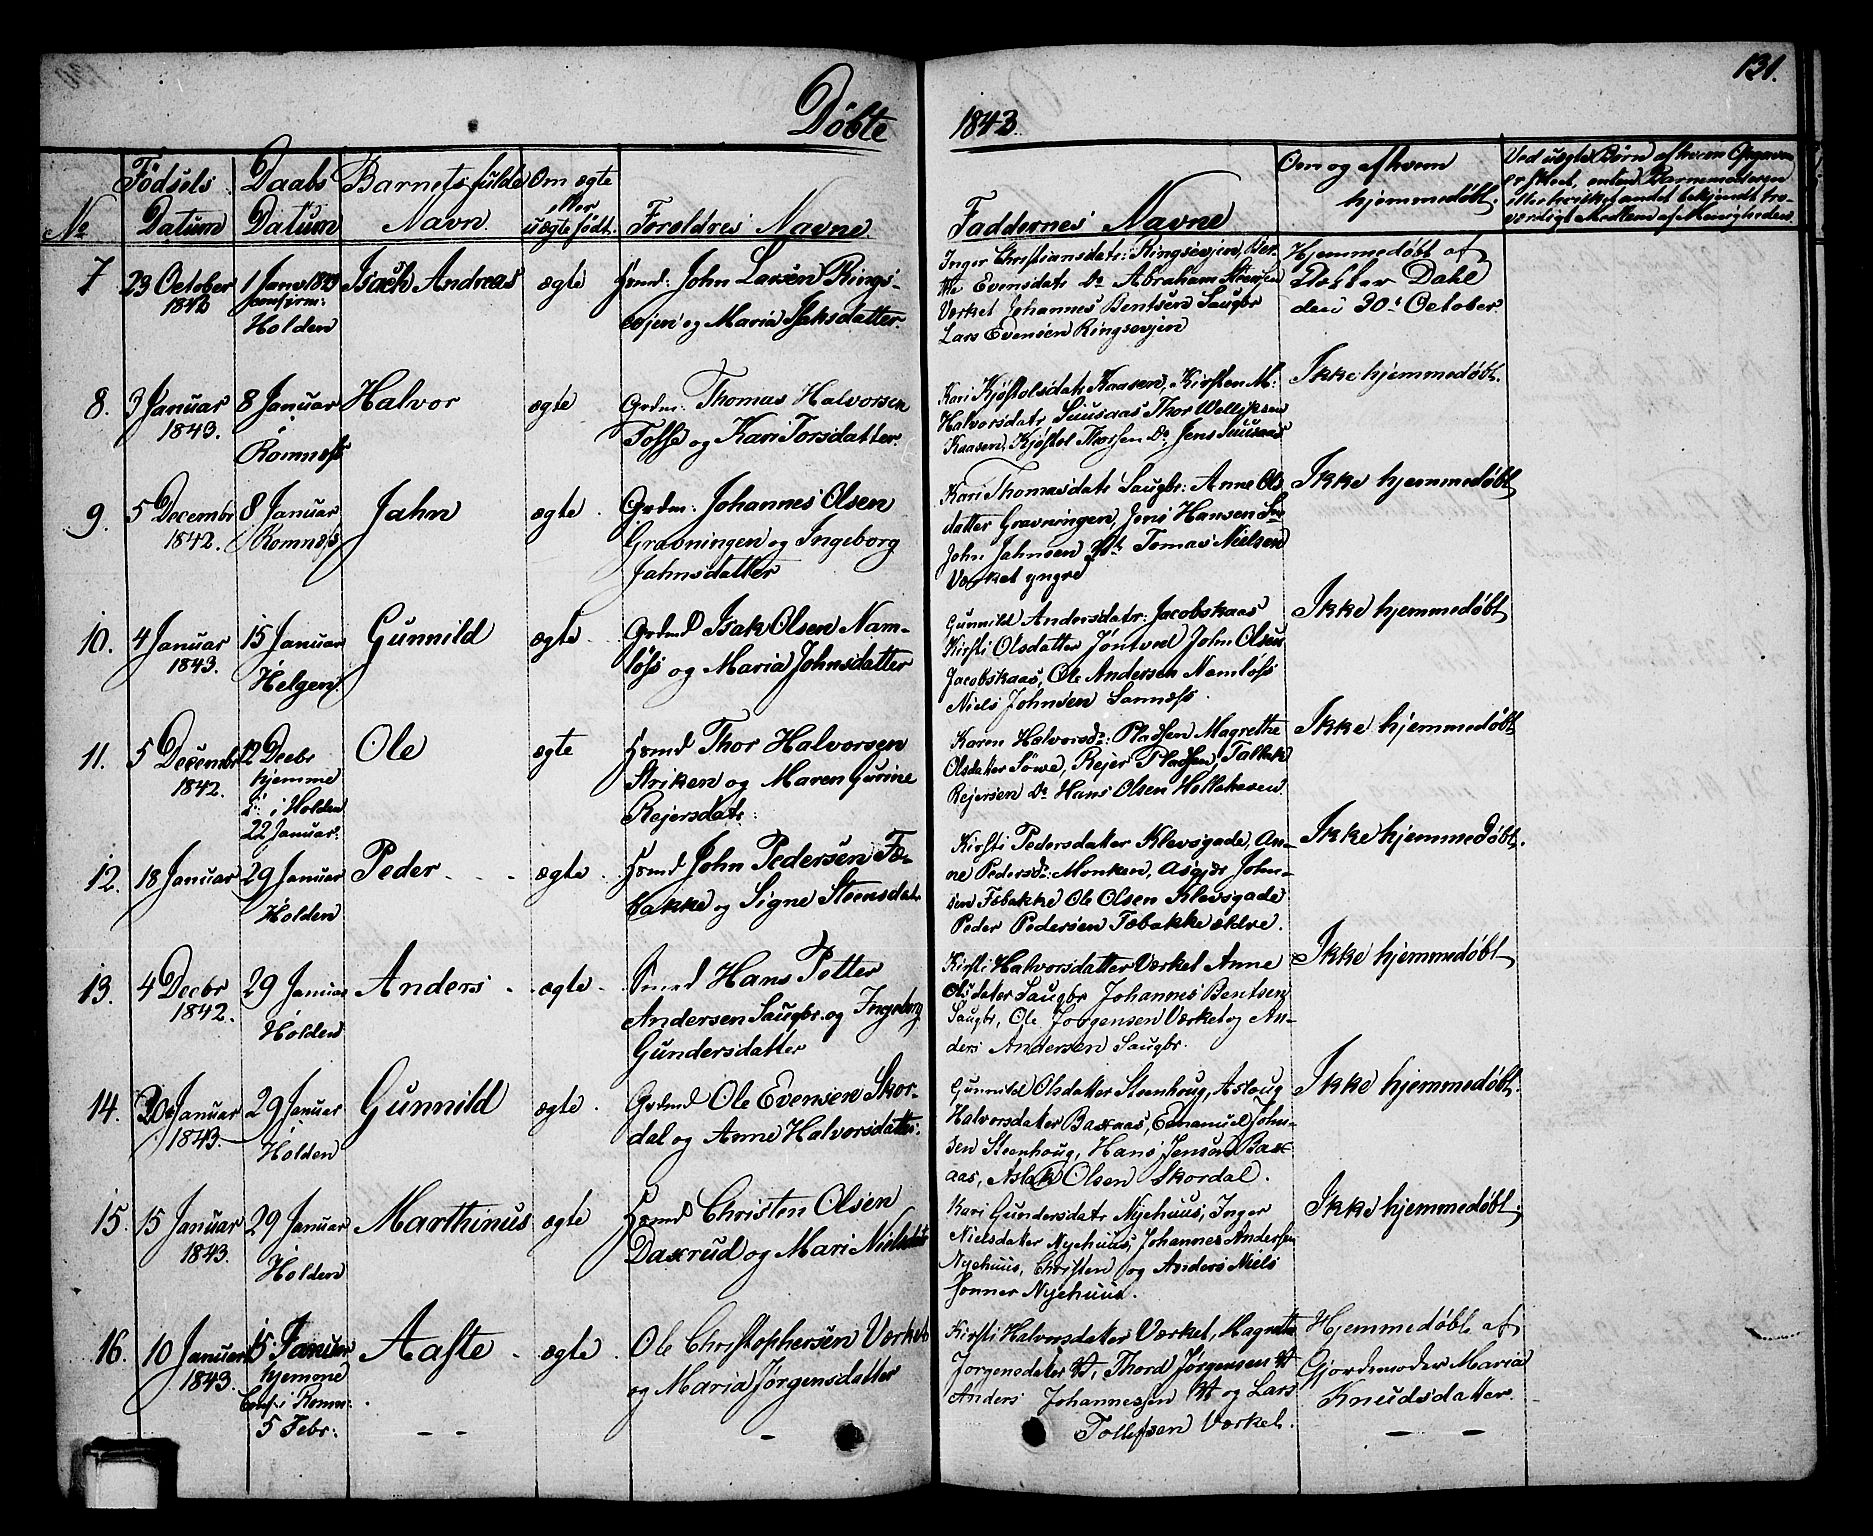 131.
Döbte 1843.
No
Födsels Datum
Daabs Datum
Barnets fulde Navn.
Om ægte eller uægte født.
Foreldres Navne.
Faddernes Navne
Om og af hvem hjemmedøbt.
Ved uægte Børn af hvem Opgaven
er skeet, enten Barnmoderen
eller hvilket andet bekjendt tro-
værdigt Medlem af Menigheden.
7 23 October 1842
1 Janr 1843
Holden
Isach Andreas
ægte
John Larsen Rings-
evjen og Maria Isaksdatter.
Inger Christiansdatr: Ringsevjen, Ber-
the Evensdatr Do Abraham
Værket Johannes Bentsen Saugbr
Lars Evensen Ringsevjen
Hjemmedøbt af
Dokter Dahl
den 30t October.
8. 3 Januar 1843.
8 Januar
i
Romnæss
Halvor
ægte
Grdm: Thomas Halvorsen
Tofse og Kari Torsdatter.
Kari Kjøstolsdatr Kaasen, Kirsten M:
Halvorsdatr Suusaas Thor Wetlesen
Kaasen, Kjøstol Thorsen Do Jens Suusaas
Ikke hjemmedøbt.
9. 5 Decembr 1842.
8 Januar
Romnæss
Jahn
ægte.
Grdm: Johannes Olsen
Gravningen og Ingeborg
Jahnsdatter
Kari Thomasdatr Saugbr: Anne Ols
datter Gravningen, Jens Hansen
John Jahnsen Tomas Nielsen
Værket yngre
Ikke hjemmedøbt
10. 4 Januar 1843.
15 Januar
i
Helgen
Gunnild
ægte.
Grdmd Isak Olsen Nam-
løss og Maria Johnsdatter
Gunnild Andersdatr: Jacobskaas
Kirsti Olsdatter Jøntved John Olsen
Jacobskaas, Ole Andersen Namløss
Niels Johnsen Sannæss.
Ikke hjemmedøbt
11. 5 Decembr 1842.
12 Decbr
hjemme
i Holden
22 Januar:
Ole
ægte
Hsmd Thor Halvorsen
Striken og Maren Gurine
Rejersdatr:
Karen Halvorsdr: Pladsen Magrethe
Olsdatter Sôwe, Rejer Pladsen, Tallak
Rejersen Do Hans Olsen Hollekosen.
Ikke hjemmedøbt
12. 18 Januar
29 Januar
i
Holden
Peder
ægte.
Hsmd John Pedersen Fæ-
bakke og Signe Steensdatr
Kirsti Pedersdatter Klevsgade, An-
ne Pedersdr: Monken, Asgjær John-
sen Fæbakke Ole Olsen Klevsgade
Peder Pedersen Fæbakke ældre.
Ikke hjemmedøbt.
13. 4 Decbr 1842.
29 Januar
i
Holden
Anders
ægte.
Smed Hans Petter
Andersen Saugbr. og Ingeborg
Gundersdatter
Kirsti Halvorsdatter Værket Anne
Olsdatter Saugbr Johannes Bentsen
Saugbr, Ole Jørgensen Værket og An-
ders Andersen Saugbr.
Ikke hjemmedøbt
14. 20 Januar 1843.
29 Januar
i
Holden
Gunnild
ægte.
Grdmd Ole Evensen Skor-
dal og Anne Halvorsdatter.
Gunnild Olsdatter Steenhoug, Aslaug
Halvorsdatter Baxaas, Emanuel John-
sen Steenhoug, Hans Jensen Bax-
aas, Aslak Olsen Skordal.
Ikke hjemmedøbt.
15. 15 Januar 1843.
29 Januar
i
Holden
Marthinus
ægte
Hsmd Christen Olsen
Daxrud og Mari Nielsdatr
Kari Gundersdatr Nyehuus, Inger
Nielsdatter Nyehuus, Johannes Andersen
Nyehuus, Christen og Anders Niels
sønner Nyehuus.
Ikke hjemmedøbt.
16. 10 Januar 1843.
15 Januar
hjemme
Conf: i Romn:
5 Febr:
Aaste
ægte.
Ole Christophersen Værket
og Maria Jørgensdatter
Kirsti Halvorsdatter Værket, Magrethe
Jørgensdatter Thord Jørgensen
Anders Johannessen og Lars
Tollefsen Værket.
Hjemmedøbt af
Gjordemoder Maria
Knudsdatter